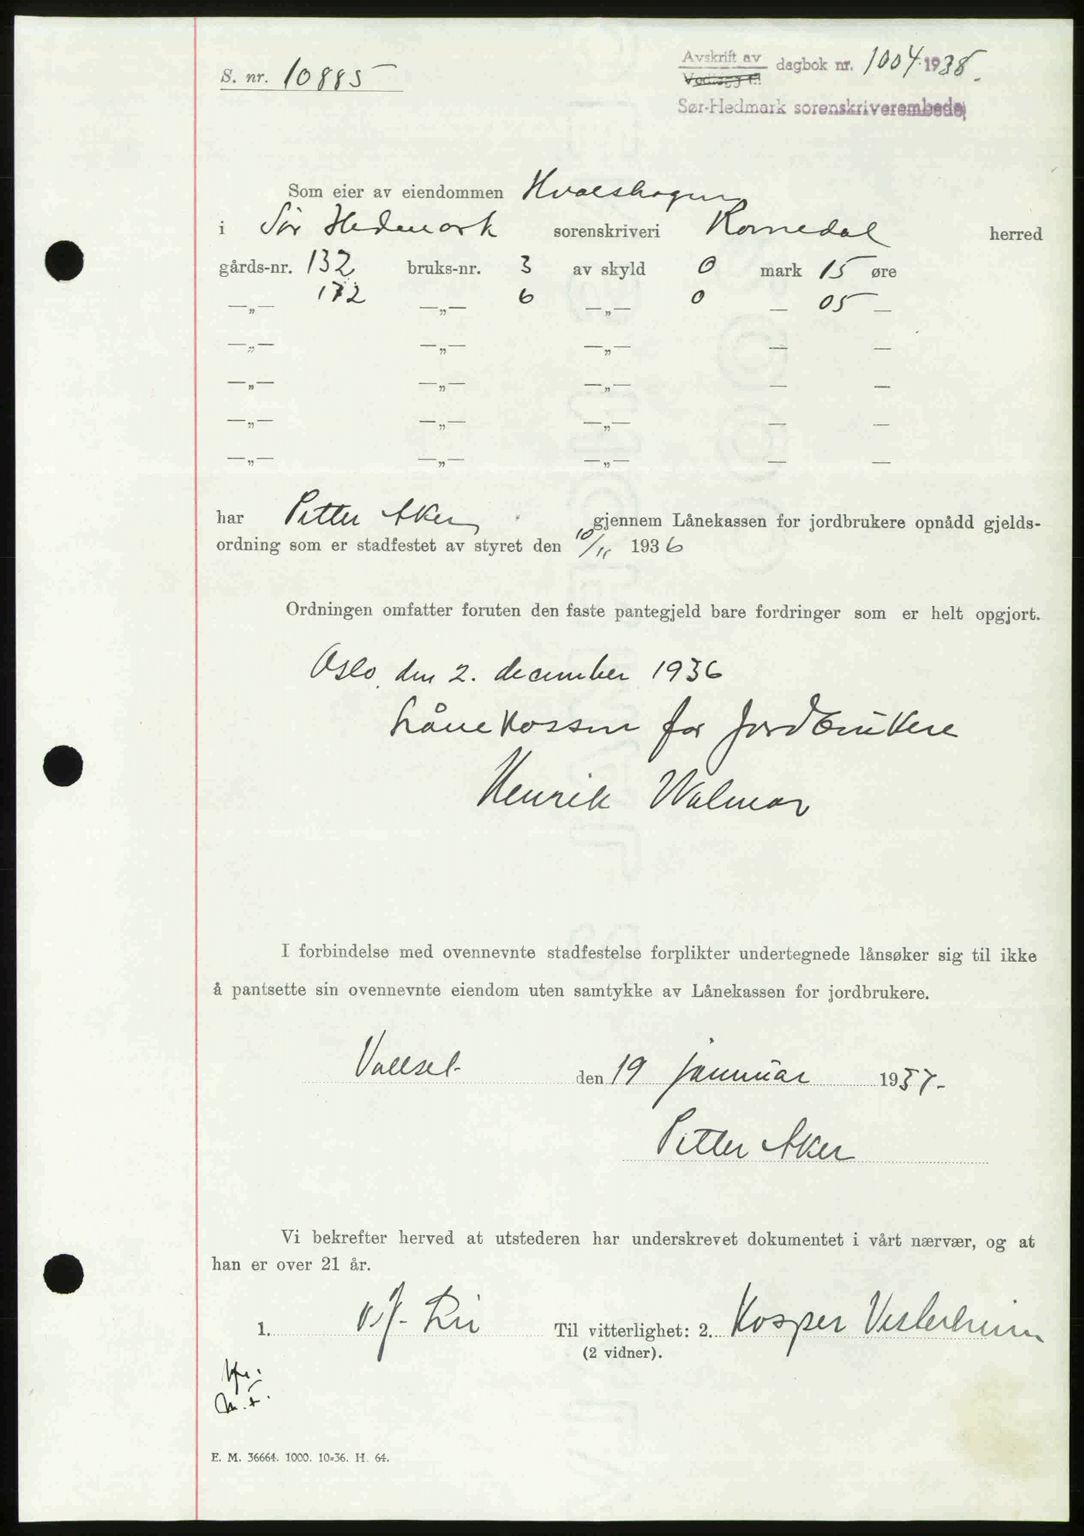 S. nr. 10885
Avskrift av dagbok nr. 1004 1938.
Sør-Hedmark sorenskriverembede
Som eier av eiendommen Hvalshagen
i Sør Hedemark sorenskriveri Romedal herred
gårds-nr. 132 bruks-nr. 3 av skyld 0 mark 15 øre
—„— 172 —„— 6 —„— 0 — 05 —
—„— —„— —„— — —
—„— —„— —„— — —
—„— —„— —„— — —
—„— —„— —„— — —
har Petter Aker gjennem Lånekassen for jordbrukere opnådd gjelds-
ordning som er stadfestet av styret den 10/11 1936
Ordningen omfatter foruten den faste pantegjeld bare fordringer som er helt opgjort.
Oslo, den 2. december 1936
Lånekassen for Jordbrukere
Henrik Walmar
I forbindelse med ovennevnte stadfestelse forplikter undertegnede lånsøker sig til ikke
å pantsette sin ovennevnte eiendom uten samtykke av Lånekassen for jordbrukere.
Vallset den 19 januar 1937-
Petter Aker
Vi bekrefter herved at utstederen har underskrevet dokumentet i vårt nærvær, og at
han er over 21 år.
1. Til vitterlighet: 2. Kasper Vesterheim
(2 vidner).
E. M. 36664. 1000. 10-36. H. 64.